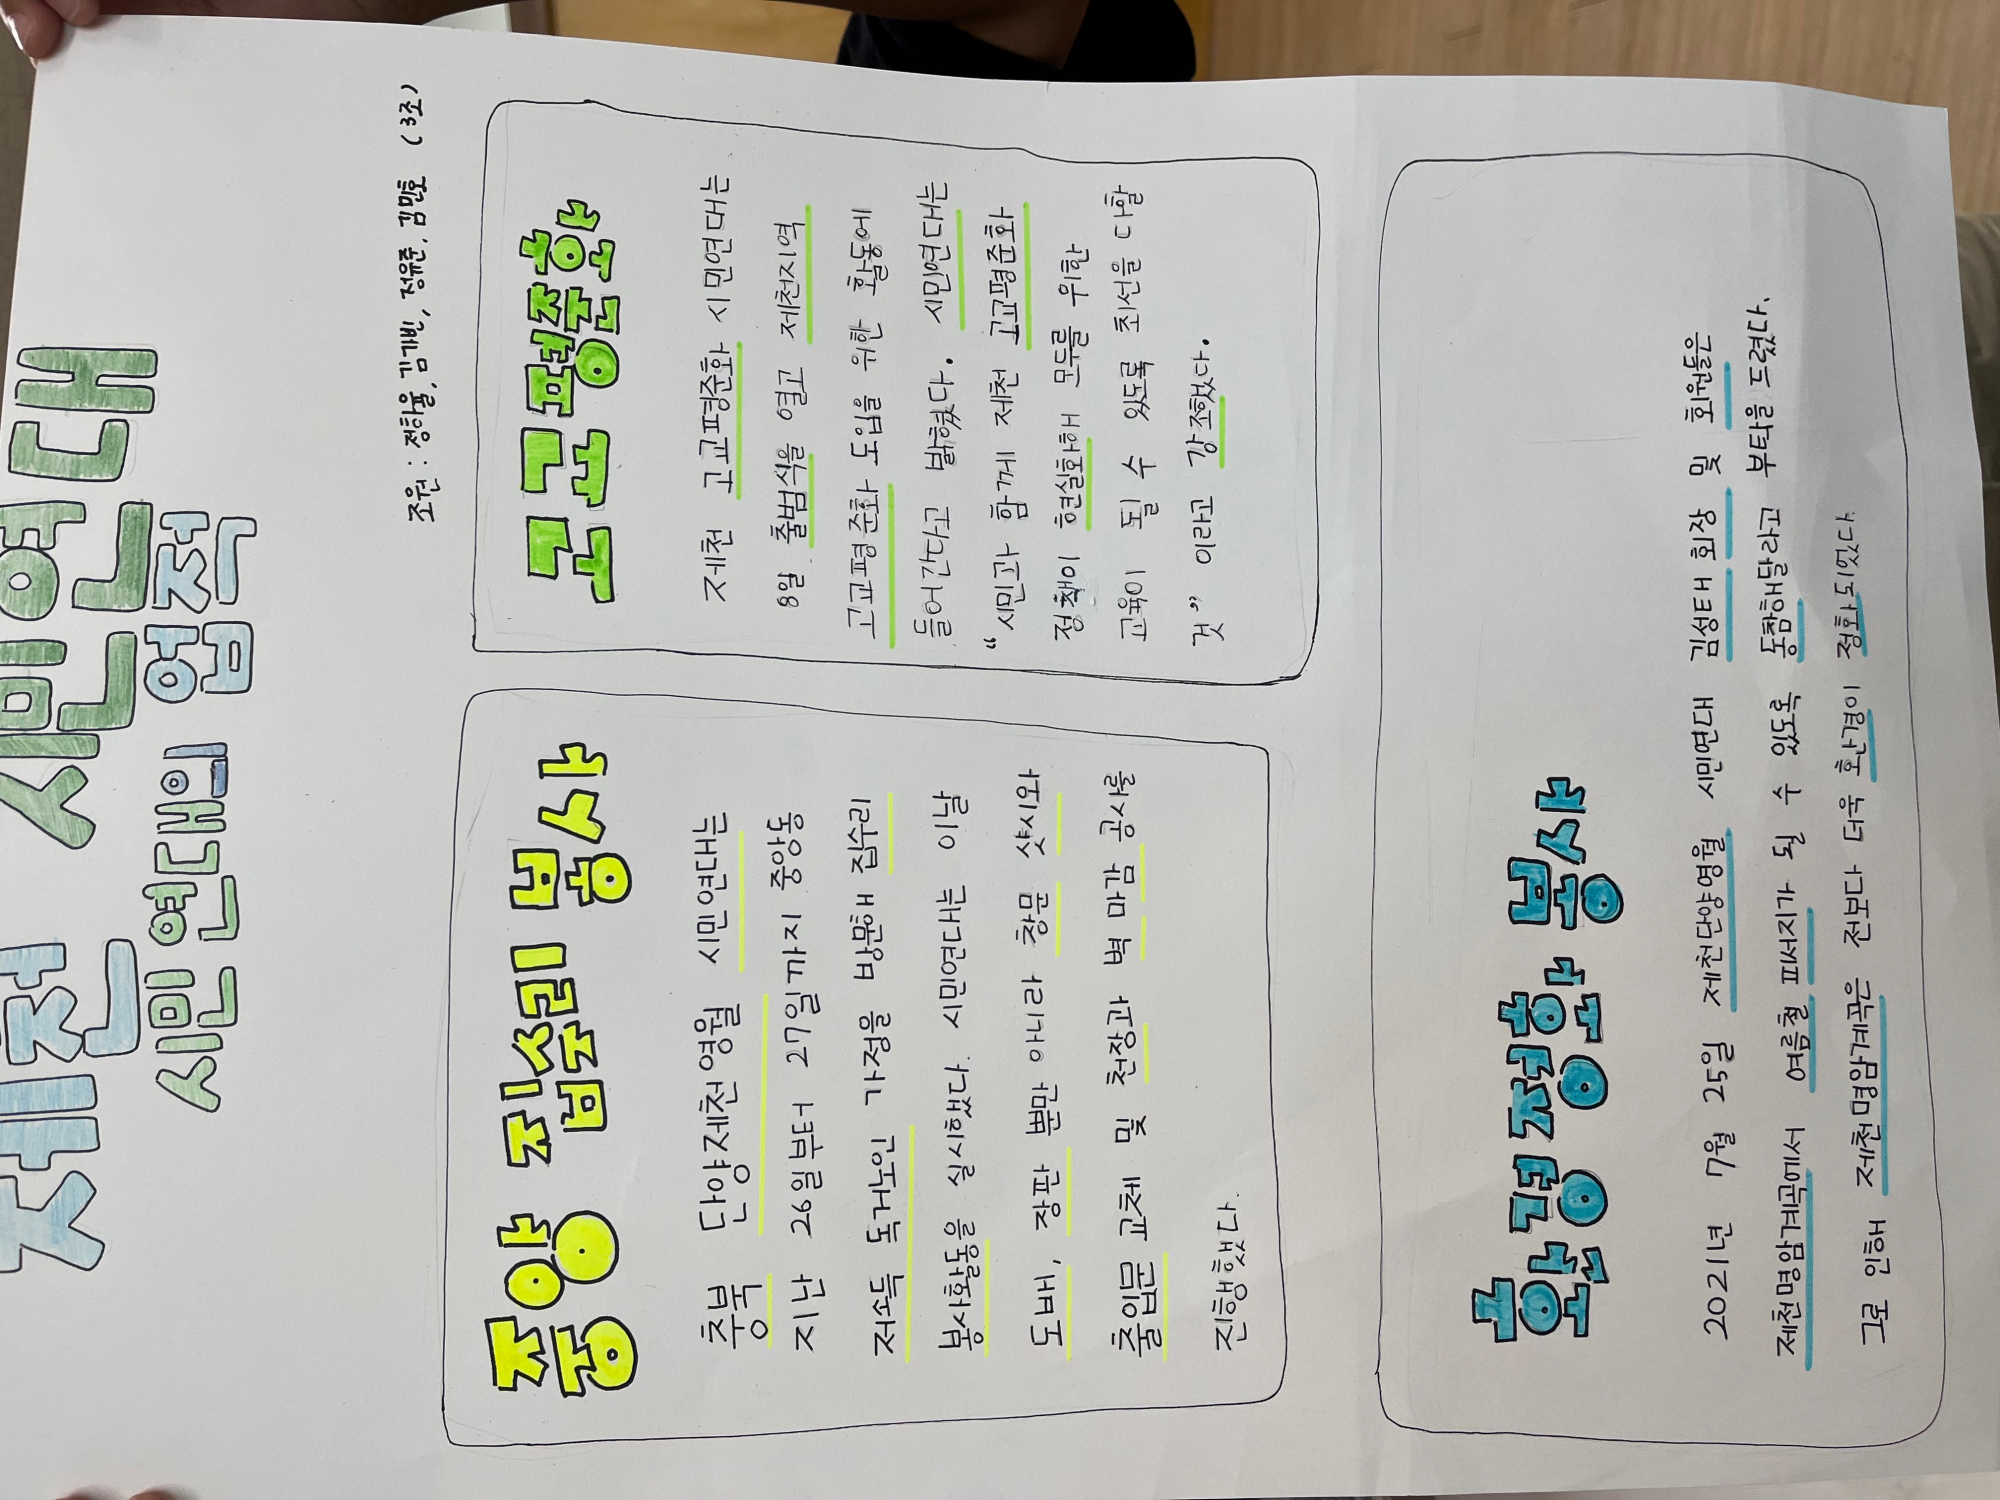 제천 시민연대
시민 연대의 업적
조원 : 정하율, 김가빈, 정유준, 김민호 (3조)
중앙 집수리 봉사
충북 단양제천영월 시민연대는
지난 26일부터 27일까지 중앙동
저소득 독거노인 가정을 방문해 집수리
봉사활동을 실시했다. 시민연대는 이날
도배, 장판 뿐만 아니라 창문 샷시와
출입문 교체 및 천장과 벽 마감 공사를
진행했다.
고교평준화
제천 고교평준화 시민연대는
8일 출범식을 열고 제천지역
고교평준화 도입을 위한 활동에
들어간다고 밝혔다. 시민연대는
“시민과 함께 제천 고교평준화
정책이 현실화해 모두를 위한
교육이 될 수 있도록 최선을 다할
것” 이라고 강조했다.
환경정화 봉사
2021년 7월 25일 제천단양영월 시민연대 김성태 회장 및 회원들은
제천명암계곡에서 여름철 피서지가 될 수 있도록 동참해달라고 부탁을 드렸다.
그로 인해 제천명암계곡은 전보다 더욱 환경이 정화되었다.